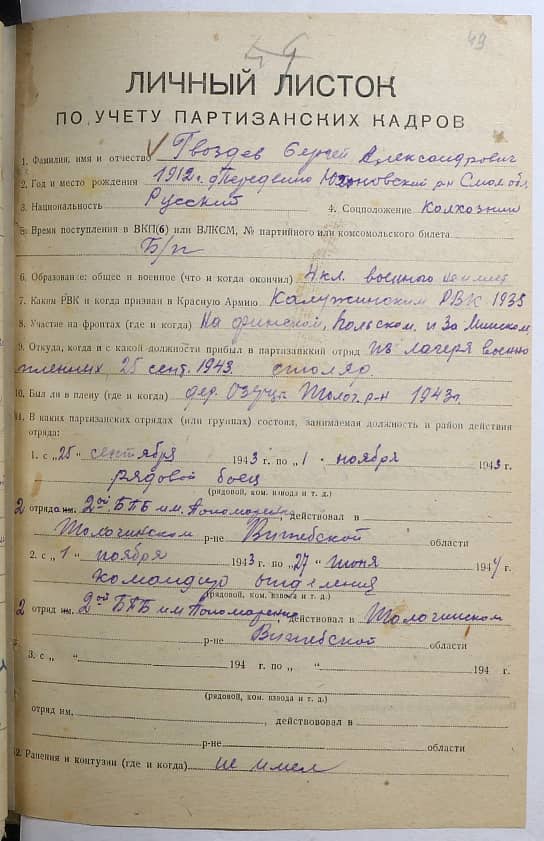 49
ЛИЧНЫЙ ЛИСТОК
ПО УЧЕТУ ПАРТИЗАНСКИХ КАДРОВ
1. Фамилия, имя и отчество Гвоздев Сергей Александрович
2. Год и место рождения 1912 г. д Переделино Юхновский р-н Смол обл
3. Национальность Русский 4. Соцположение Колхозник
5. Время поступления в ВКП(б) или ВЛКСМ, № партийного или комсомольского билета
Б/п
6. Образование: общее и военное (что и когда окончил) 4 кл. военного не имеет
7. Каким РВК и когда призван в Красную Армию Калужинским РВК 1935
8. Участие на фронтах (где и когда) На финском, польском, и За Минском
9. Откуда, когда и с какой должности прибыл в партизанский отряд из лагеря военно
пленных, 25 сент. 1943. столяр
10. Был ли в плену (где и когда) дер. Толоч. р-н 1943 г.
11. В каких партизанских отрядах (или группах) состоял, занимаемая должность и район действия
отряда:
1. с „25" сентября 1943 г. по „1" ноября 1943 г.
рядовой боец
(рядовой, ком. взвода и т. д.)
2 отряд им. 2ой БПБ им. Пономаренко, действовал в
Толочинском р-не Витебской области
2. с „1" ноября 1943 г. по „27" июня 1944 г.
командир отделения
(рядовой, ком. взвода и т. д.)
2 отряд им. 2ой БПБ им Пономаренко, действовал в Толочинском
р-не Витебской области
3. с „ " 194 г. по „ " 194 г.
(рядовой, ком. взвода и т. д.)
отряд им. , действововал в
р-не области
12. Ранения и контузии (где и когда) не имел